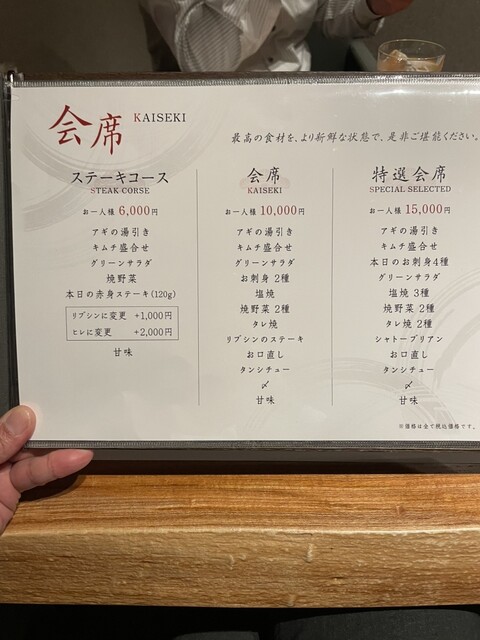 会席 KAISEKI
最高の食材を、より新鮮な状態で、是非ご堪能ください。
ステーキコース
STEAK CORSE
お一人様 6,000円
アギの湯引き
キムチ盛合せ
グリーンサラダ
焼野菜
本日の赤身ステーキ(120g)
リブシンに変更 +1,000円
ヒレに変更 +2,000円
甘味
会席
KAISEKI
お一人様 10,000円
アギの湯引き
キムチ盛合せ
グリーンサラダ
お刺身 2種
塩焼
焼野菜 2種
タレ焼
リブシンのステーキ
お口直し
タンシチュー
〆
甘味
特選会席
SPECIAL SELECTED
お一人様 15,000円
アギの湯引き
キムチ盛合せ
本日のお刺身4種
グリーンサラダ
塩焼 3種
焼野菜 2種
タレ焼 2種
シャトーブリアン
お口直し
タンシチュー
〆
甘味
※価格は全て税込価格です。